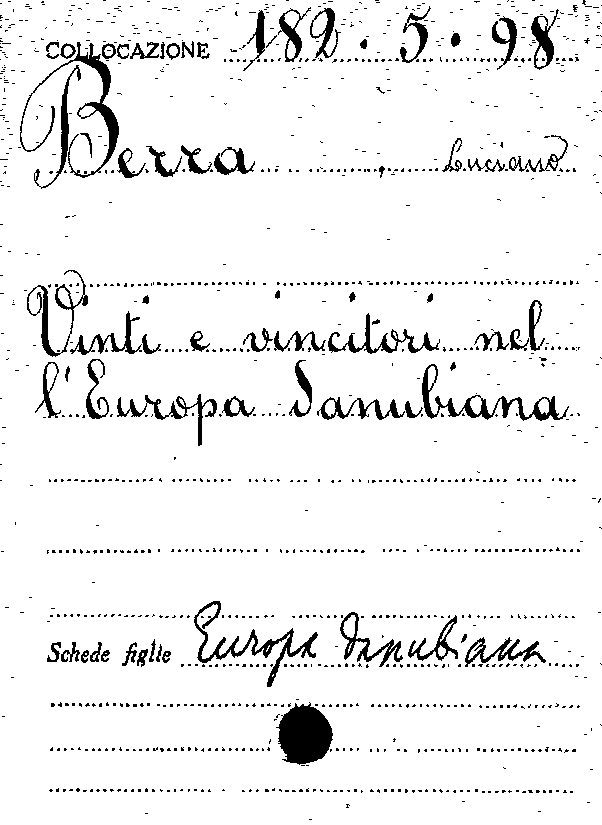 COLLOCAZIONE 182.5.98
Berra, Luciano
Vinti e vincitori nel
l'Europa danubiana
Schede figlie Europa danubiana